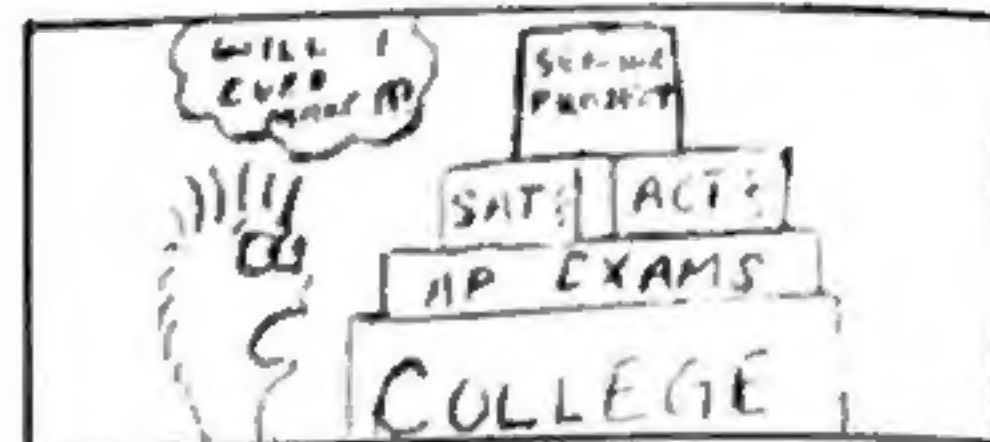 WILL I
EVER
MAKE IT?
PROJECT
SATs
ACTs
AP EXAMS
COLLEGE